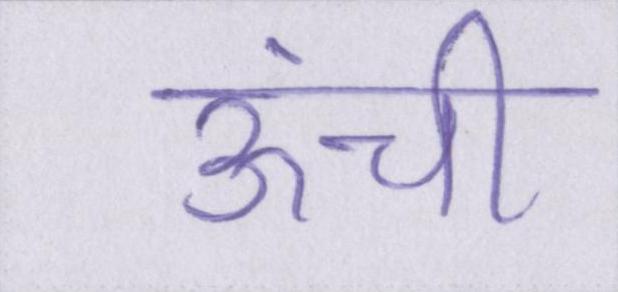 ऊंची